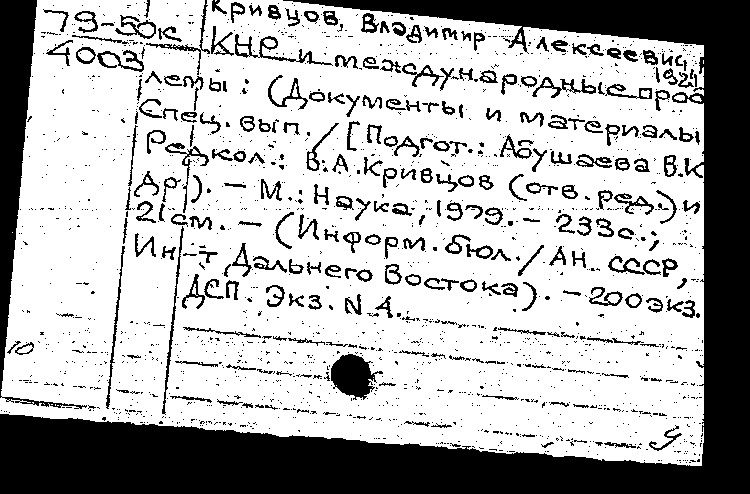 79-50к
4003
Кривцов, Владимир Алексеевич
1921
КНР и международные проб
лемы : (Документы и материалы
Спец. вып. / [Подгот.: Абушаева В.К
Редкол.: В.А.Кривцов (отв. ред.) и
др.). – М.: Наука, 1979. – 233с.;
21см. – (Информ. бюл. / АН СССР,
Ин-т Дальнего Востока). – 200экз.
ДСП. Экз. N 4.
10